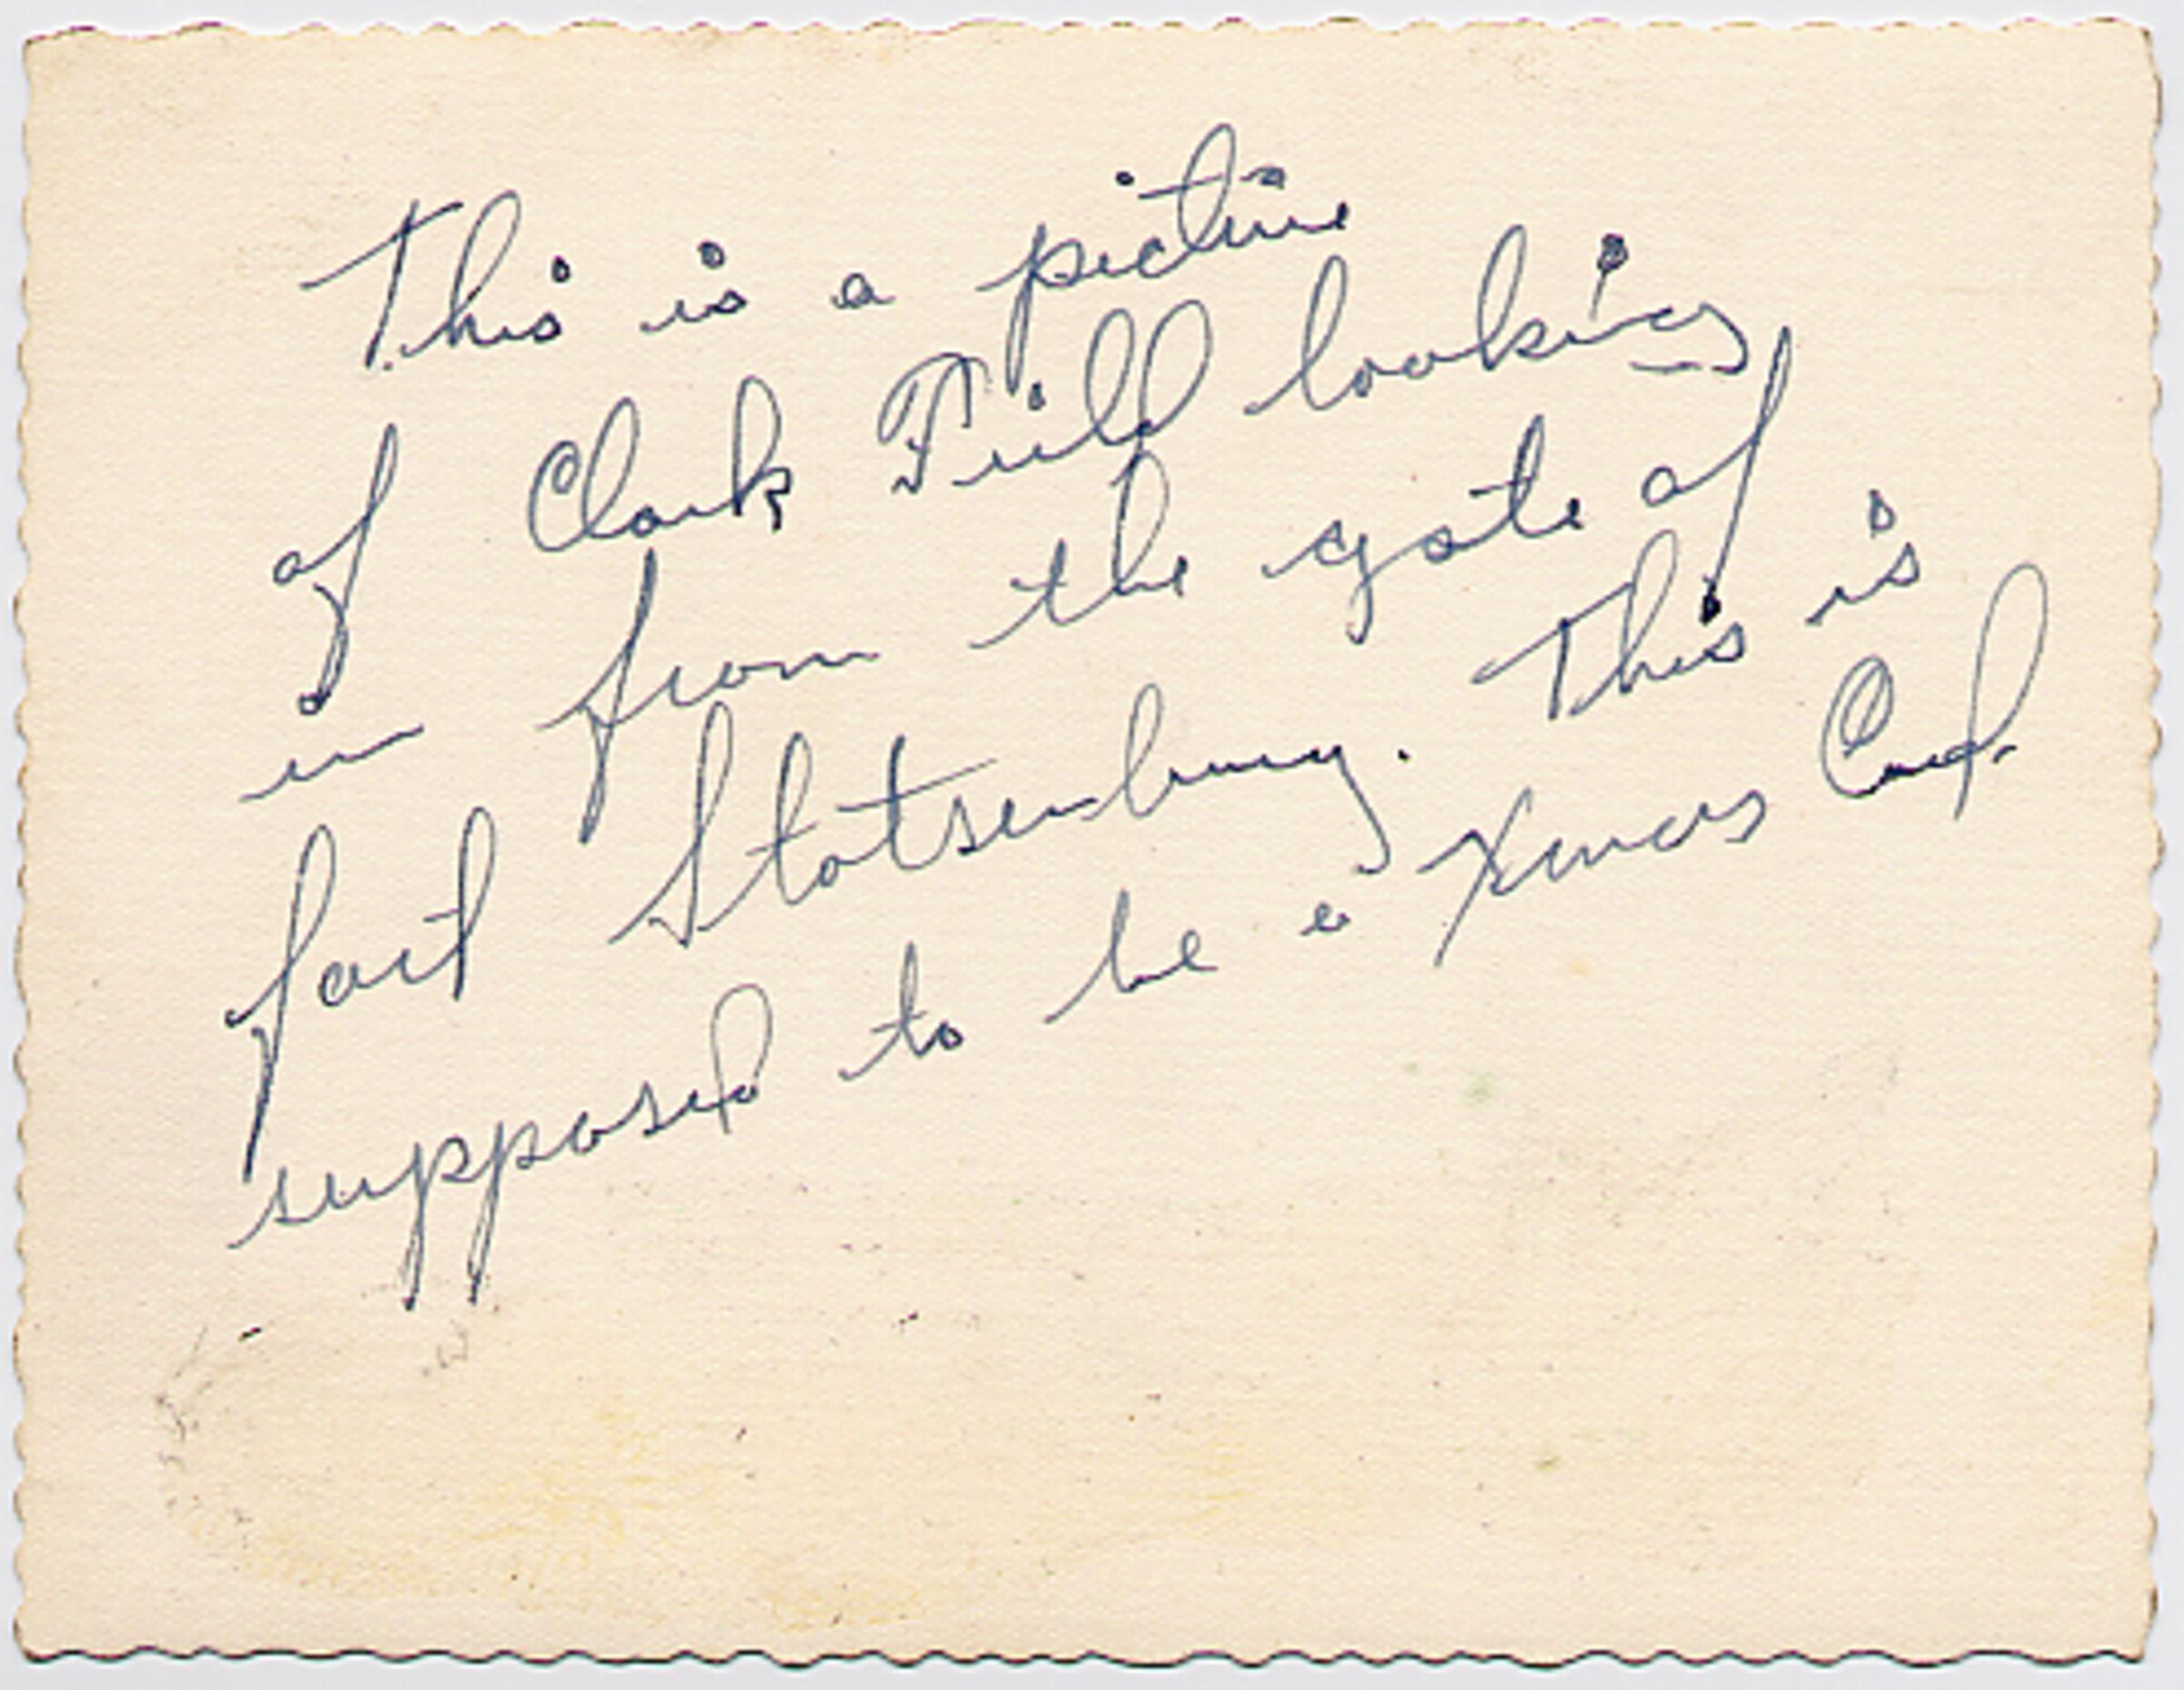 This is a picture
of Clark Field looking
in from the gate of
fort Stotsenburg. This is
supposed to be a Xmas Card.